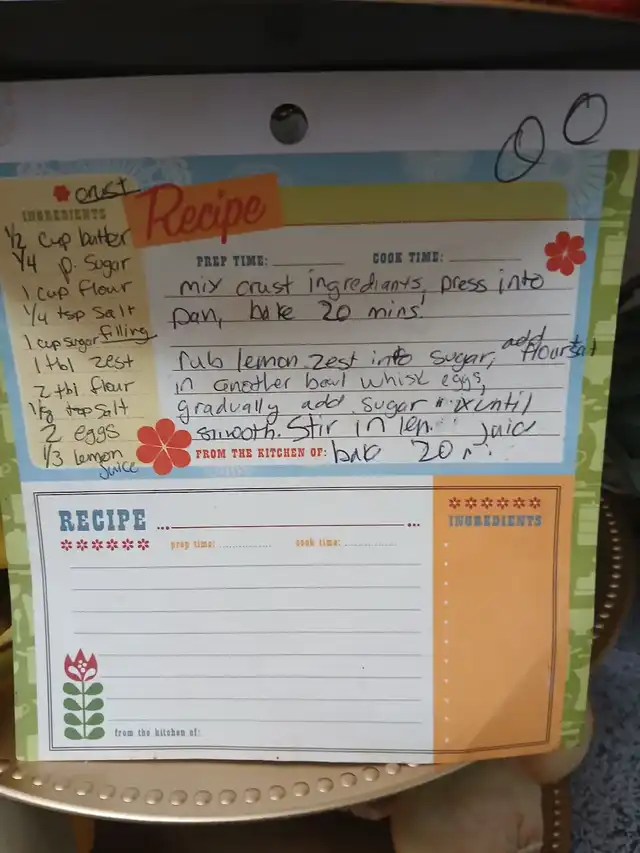 crust
INGREDIENTS
1/2 cup butter
1/4 p. Sugar
1 cup flour
1/4 tsp salt
filling
1 cup sugar
1 tbl zest
2 tbl flour
1/8 tsp salt
2 eggs
1/3 lemon
juice
Recipe
PREP TIME: COOK TIME:
mix crust ingrediants, press into
pan, bake 20 mins.
rub lemon zest into sugar, add flour + salt
in another bowl whisk eggs,
gradually add sugar until
smooth. Stir in juice
FROM THE KITCHEN OF: 20
RECIPE
prep time: cook time:
from the kitchen of:
INGREDIENTS